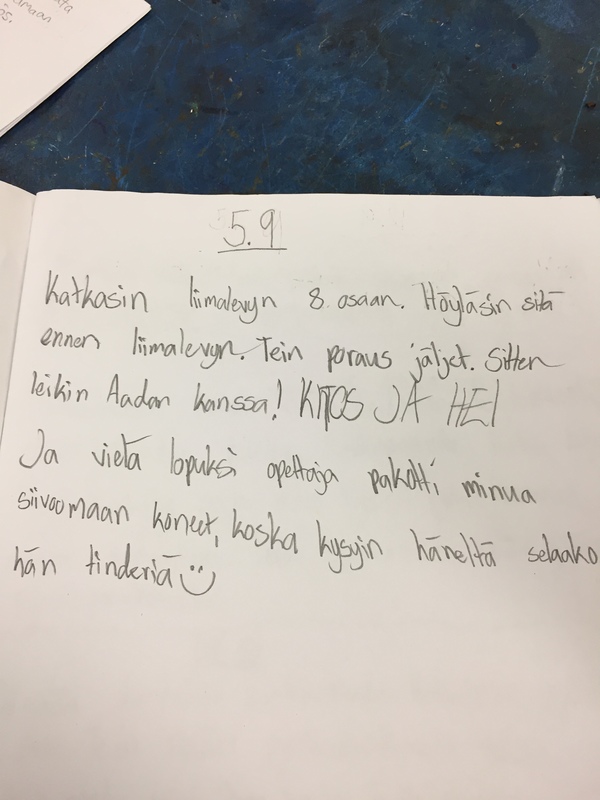 5.9
Katkasin liimalevyn 8 osaan. Höyläsin sitä
ennen liimalevyn. Tein poraus jäljet. Sitten
leikin Aadan kanssa! KITOS JA HEI
Ja vielä lopuksi opettaja pakotti minua
siivoomaan koneet, koska kysyin häneltä selaako
hän tinderiä :)